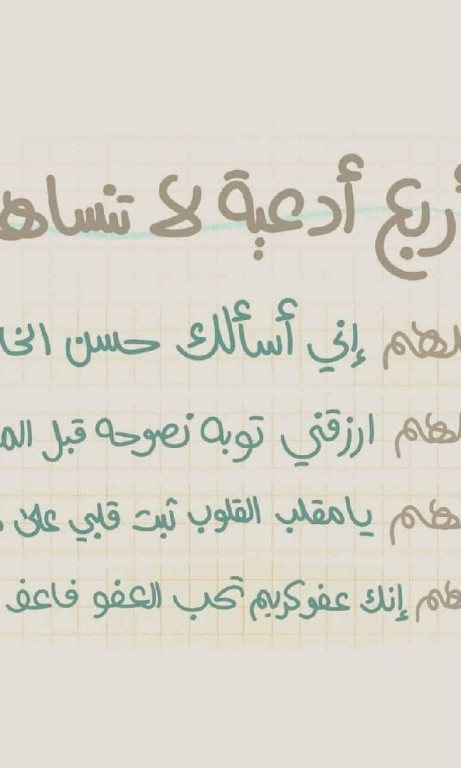 أربع أدعية لا تنساها
لهم إني أسألك حسن الخا
لهم ارزقني توبه نصوحه قبل الم
هم يامقلب القلوب ثبت قلبي على
هم إنك عفو كريم تحب العفو فاعف